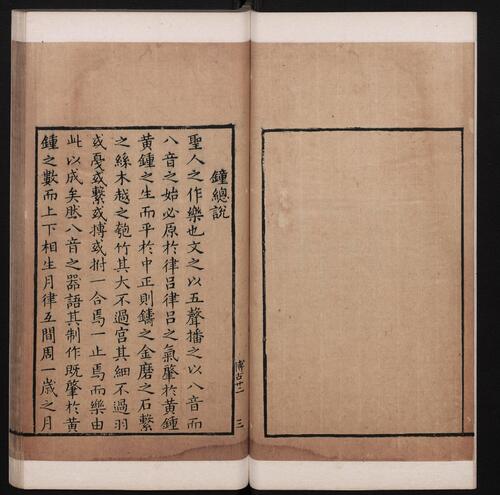 鐘總說
聖人之作樂也文之以五聲播之以八音而
八音之始必原於律呂律呂之氣肇於黃鍾
黃鍾之生而平於中正則鑄之金磨之石繫
之絲木越之匏竹其大不過宮其細不過羽
或戛或擊或搏或拊一合焉一止焉而樂由
此以成矣然八音之器語其制作既肇於黃
鍾之數而上下相生月律互間周一歲之月
博古廿二
三